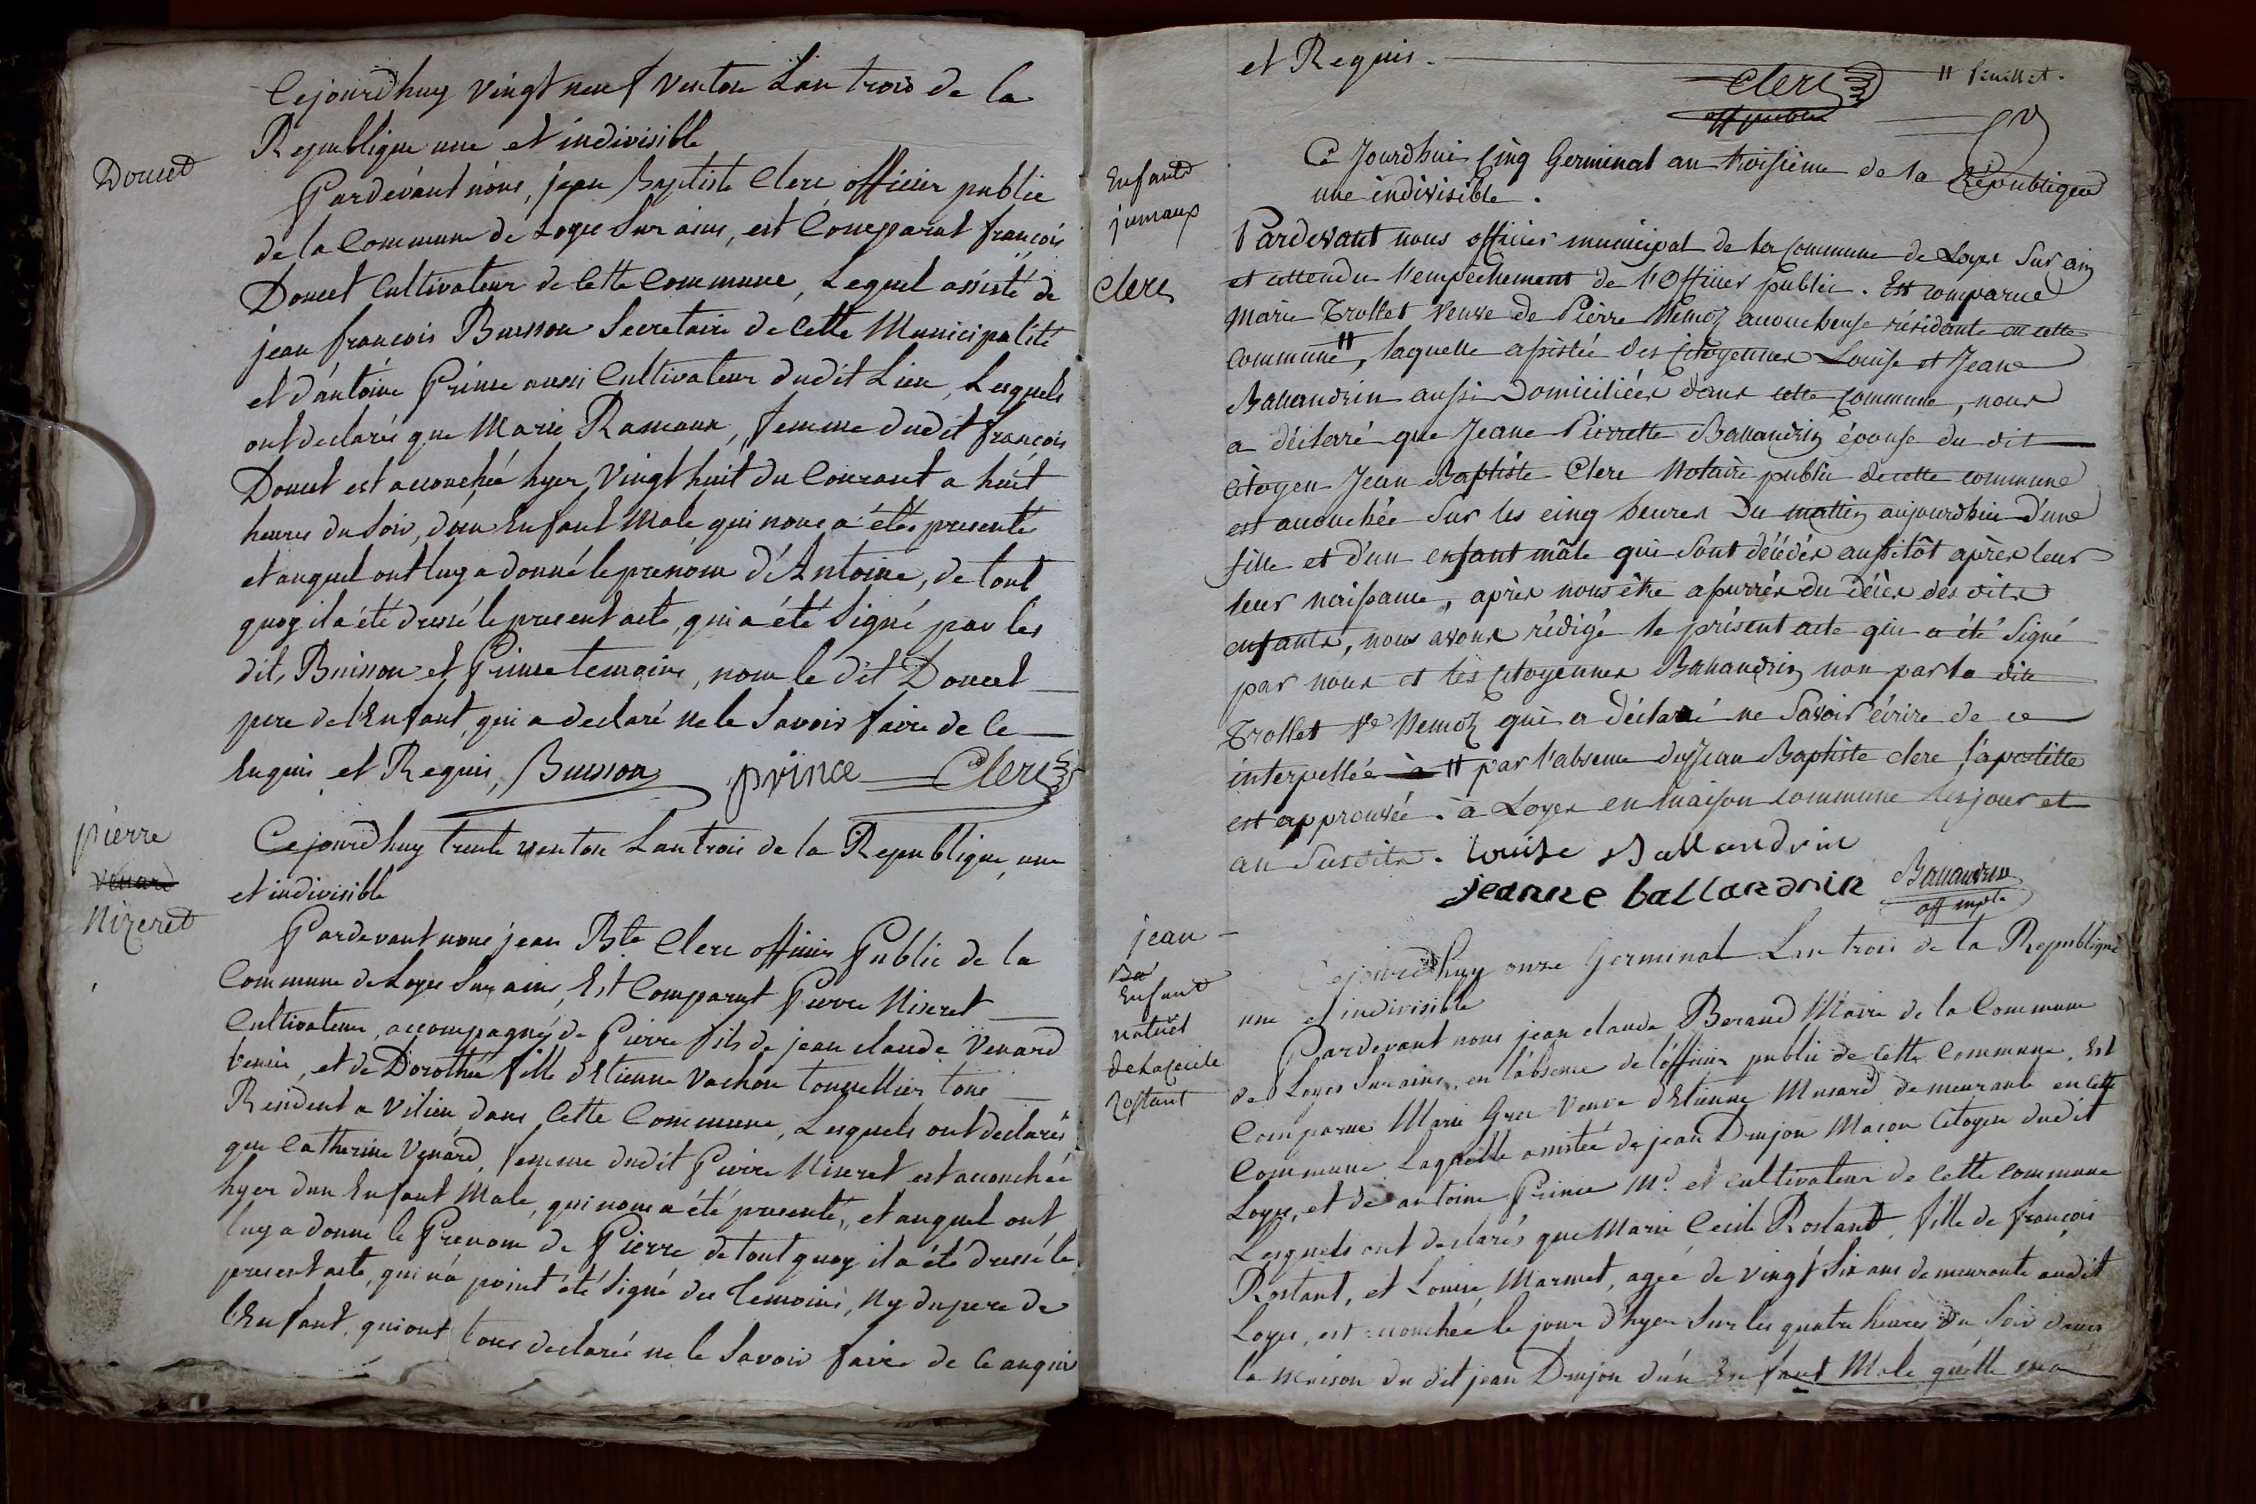 Cejourdhuy vingt neuf ventose Lan trois de la
Republique une et indivisible
Doucet
Pardevant nous, jean Baptiste Clerc officier public
de la Commune de Loyes Sur ains, est Comparut françois
Doucet Cultivateur de Cette Commune, Lequel assisté de
jean françois Buisson Secretaire de Cette Municipalité
et d'antoine Prince aussi Cultivateur dudit Lieu, Lesquels
ont declarés que Marie Ramaux, femme dudit françois
Doucet est accouchée hyer vingt huit du Courant a huit
heures du Soir, d'un Enfant Male qui nous a étés presenté
et auquel ont luy a donné le prenom d'Antoine, de tout
quoy il a été dressé le present acte, qui a été Signé par les
dits Buisson et Prince temoins, non le dit Doucet
pere de l'Enfant, qui a declaré ne le Savoir faire de Ce
Enquis et Requis, Buisson prince Clerc
pierre
venard
Nizeret
Cejourdhuy trente ventose Lan trois de la Republique une
et indivisible
Pardevant nous jean Bte Clerc officier Public de la
Commune de Loyes Sur ains, Est Comparut Pierre Niseret
Cultivateur, accompagné de Pierre fils de jean claude Venard
, et de Dorothée fille d'Etienne Vachon tonnellier tous
Resident a Vilieu dans Cette Commune, Lesquels ont declarés
que Catherine Venard, femme dudit Pierre Niseret est accouchée
hyer d'un Enfant Male, qui nous a été presenté, et auquel ont
luy a donné le Prenom de Pierre de tout quoy il a été dressé le
present acte, qui n'a point été Signé des Temoins, Ny du pere de
l'Enfant, qui ont tous declarés ne le Savoir faire de Ce enquis
et Requis.
Clerc
off public
11 feuillet.
Enfants
jumaux
Clerc
Ce Jourdhui Cinq Germinal an troisième de la République
une indivisible.
Pardevant nous officier municipal de la commune de Loyes Sur ain
et attendu l'empechement de l'Officier public. Est comparue
Marie Trollet Veuve de Pierre Nemoz accoucheuse résidante en cette
commune #, laquelle assistée des Citoyennes Louise et Jeane
Ballandrin aussi Domiciliées dans cette commune, nous
a déclaré que Jeane Pierrette Ballandrin épouse du dit
Citoyen Jean Baptiste Clerc Notaire public de cette commune
est accouchée Sur les cinq heures du matin aujourdhui d'une
fille et d'un enfant mâle qui Sont décédés aussitôt après leur
leur naissance, après nous être assurrés du décès des dits
enfants, nous avons rédigé le présent acte qui a été Signé
par nous et les Citoyennes Ballandrin non par la dite
Trollet Ve Nemoz qui a déclaré ne Savoir écrire de ce
interpellée à # par l'absence du Jean Baptiste clerc, l'apostille
est approuvée. à Loyes en maison commune les jour et
an Susdits. Louise Ballandrin
jeanne ballandrin Ballandrin
off mpal
jean
Ba
Enfant
naturel
de La Cecile
Rostant
Cejourdhuy onze Germinal Lan trois de la Republique
une et indivisible
Pardevant nous jean claude Beraud Maire de la Commune
de Loyes Sur ains, en l'absence de l'officier public de Cette Commune. Est
Comparue Marie Veuve d'Etienne Musard demeurante en Cette
Commune Laquelle assistée de jean Drujon Macon Citoyen dudit
Loyes, et de antoine Prince Md. et cultivateur de Cette Commune
Lesquels ont declarés que Marie Cecile Rostant, fille de françois
Rostant, et Louise Marmet, agée de vingt Six ans demeurante audit
Loyes, est accouchée le jour d'hyer Sur les quatre heures du Soir dans
la Maison du dit jean Drujon d'un Enfant Male qu'elle